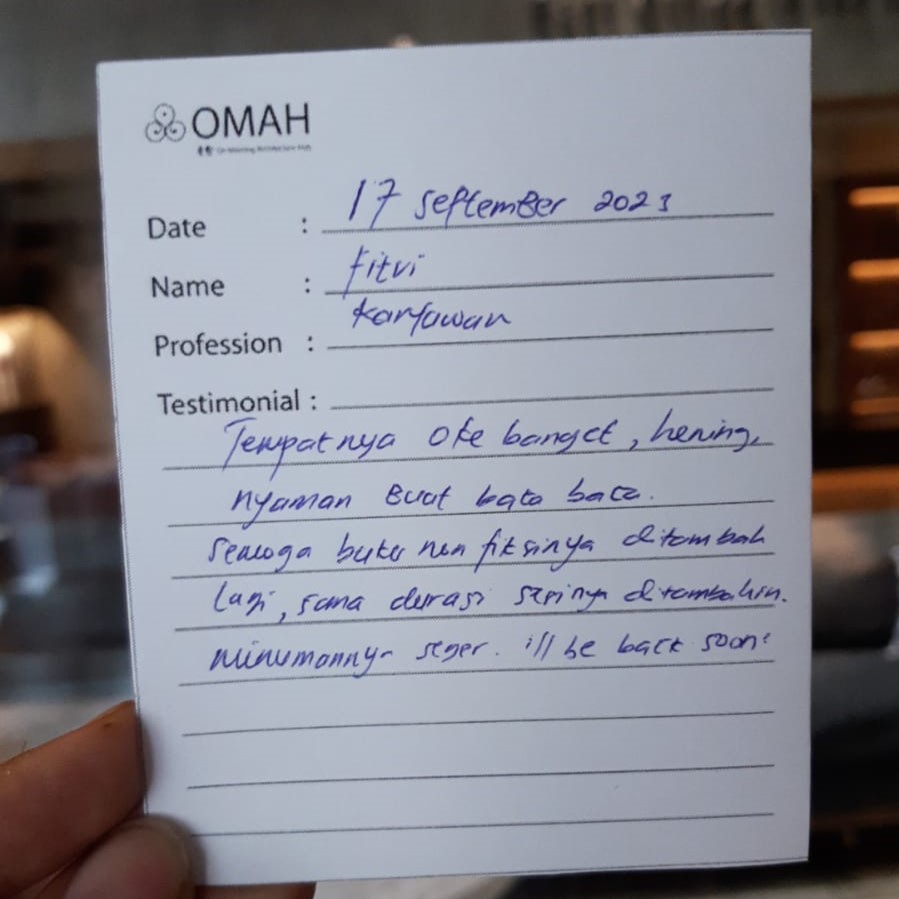 OMAH
Date : 17 September 2023
Name : Fitri
Profession : Karyawan
Testimonial :
Tempatnya oke banget, hening,
nyaman buat baca baca.
Semoga buku non fiksinya ditambah
lagi, sama durasi sesinya ditambahin.
minumannya seger. i'll be back soon!